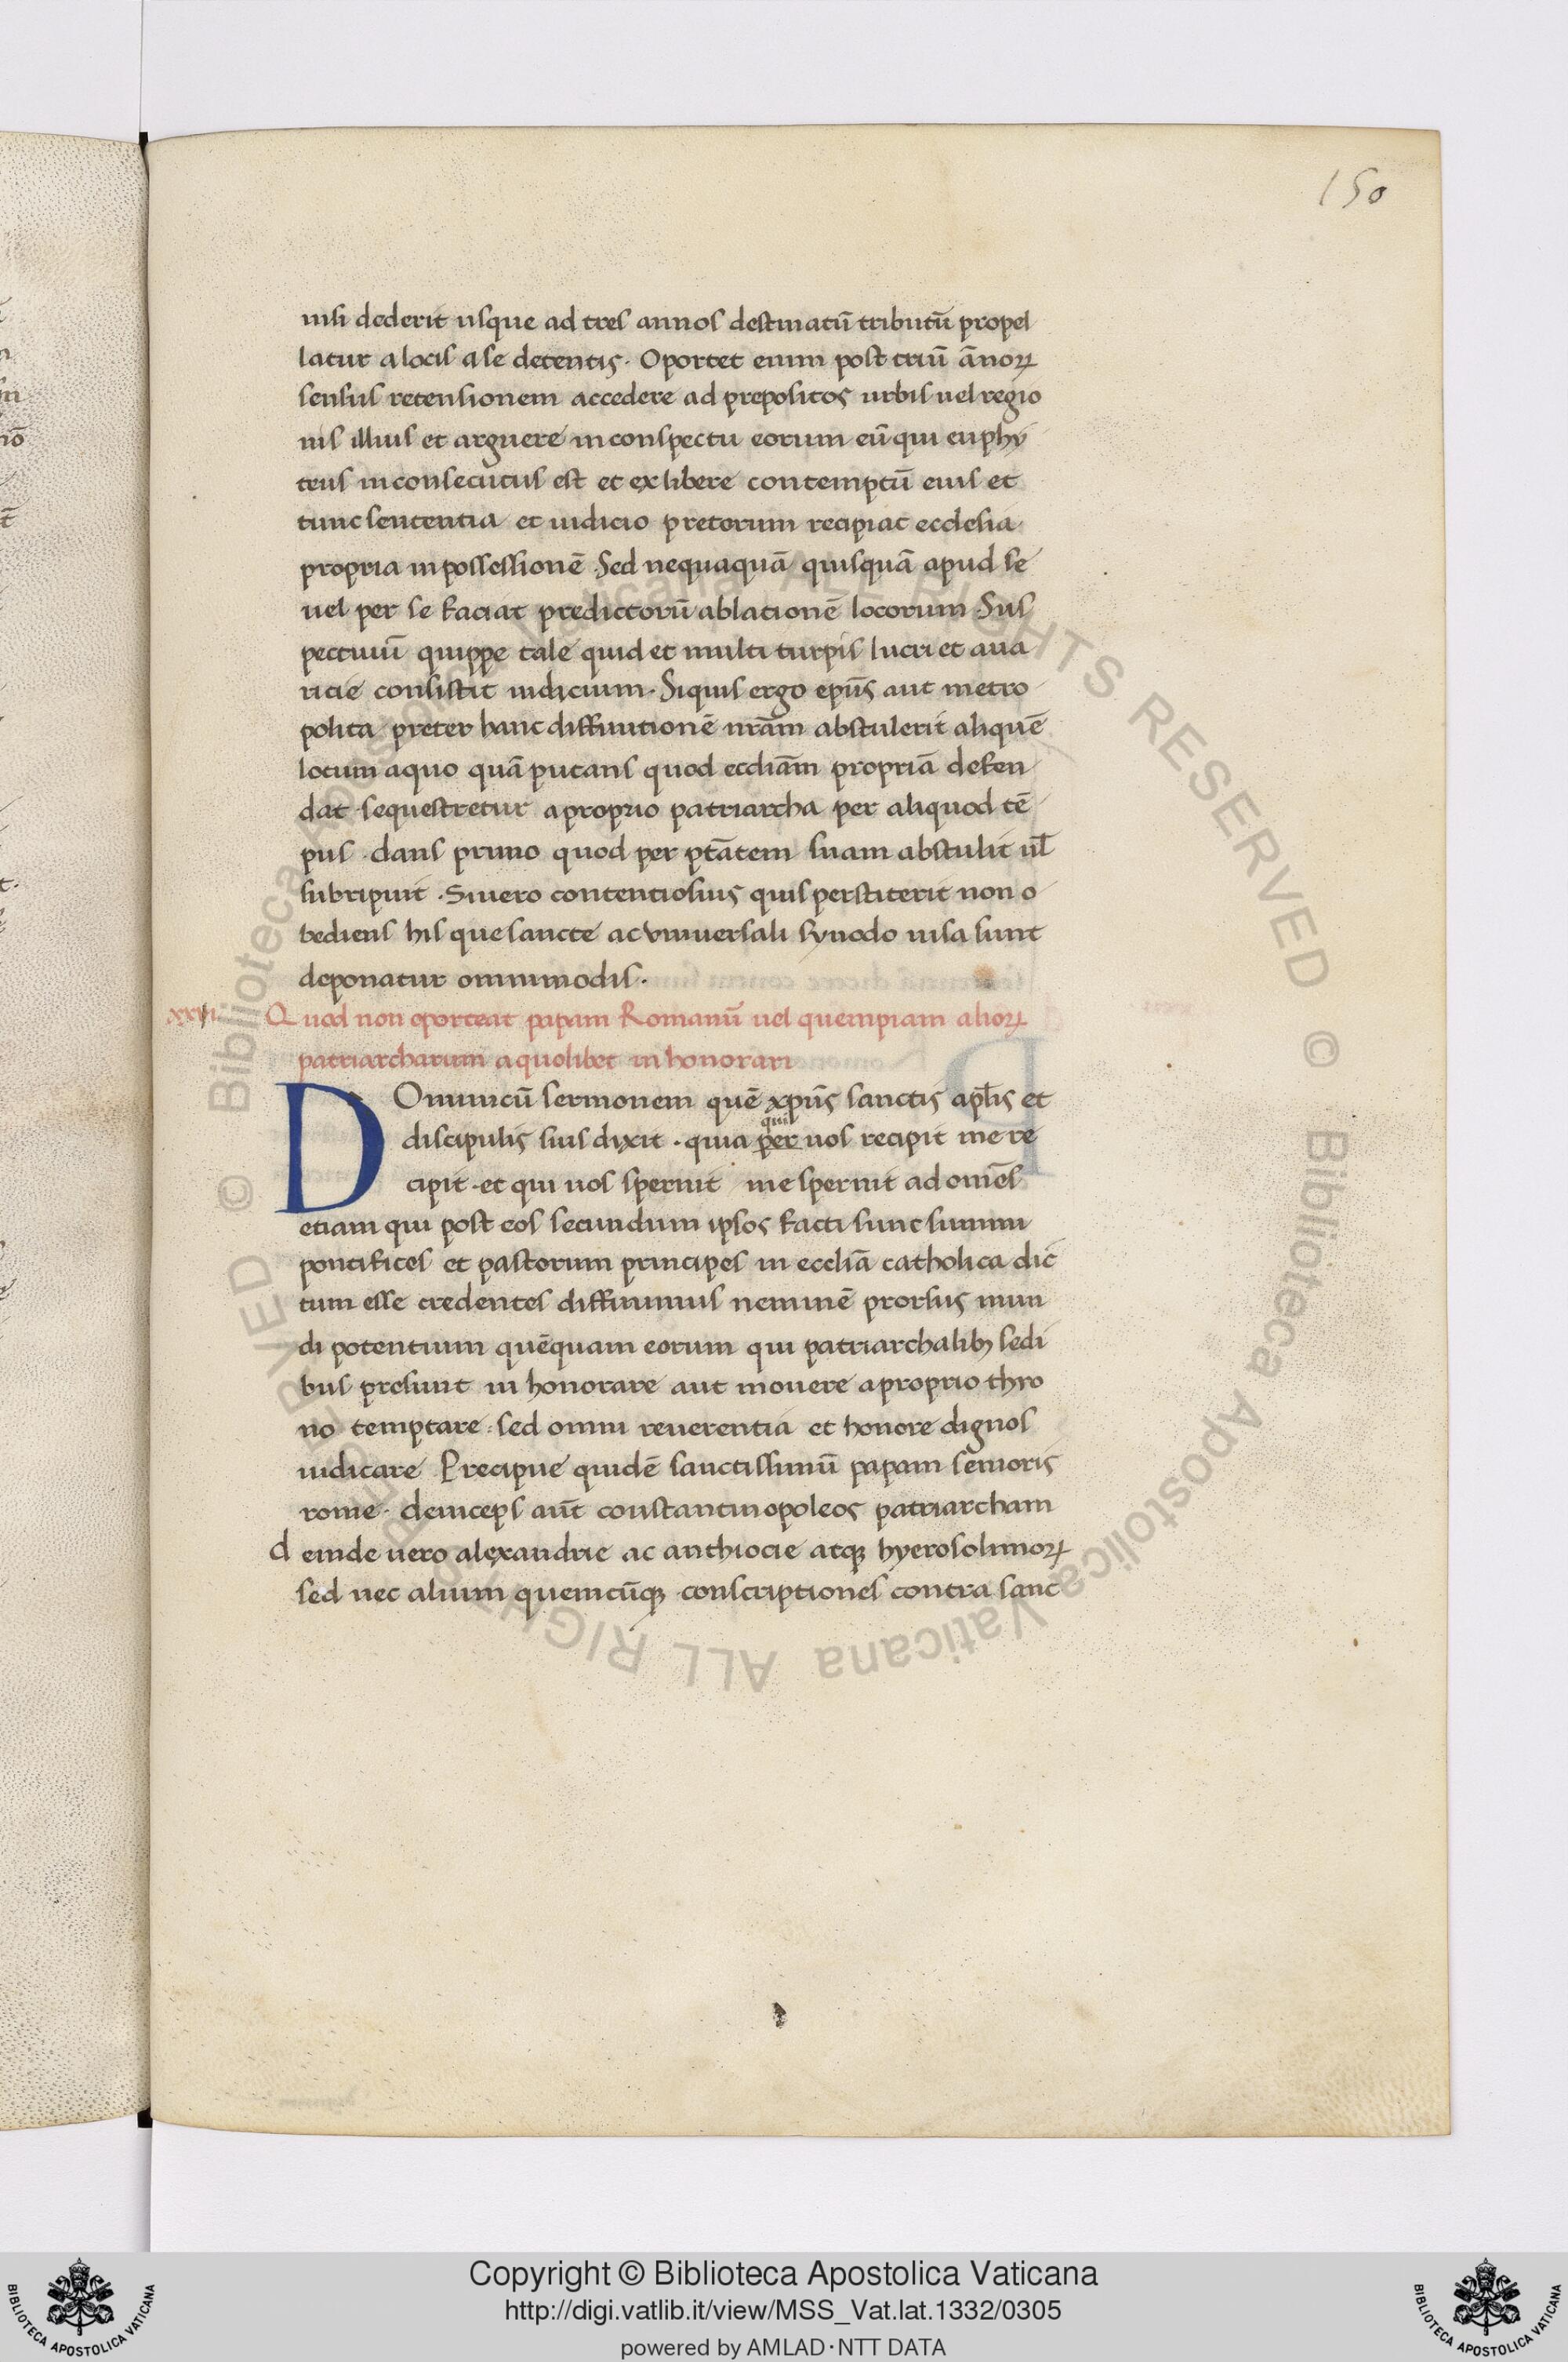 150
nisi dederit usque ad tres annos destinatū tributū propel
latur a locis a se detentis. Oportet enim post triū ānoꝝ
sensus retensionem accedere ad prepositos urbis uel regio
nis illius et arguere in conspectu eorum eū qui euphy
teus in consecutus est et exhibere contemptū eius et
tunc sententia et iudicio pretorum recipiat ecclesia
propria in possessionē. Sed nequaquā quisquā apud se
uel per se faciat predictorū ablationē locorum Sus
pectuiū quippe tale quid et multi turpis lucri et aua
ricie consistit iudicium. Siquis ergo epūs aut metro
polita preter hanc diffinitionē nrām abstulerit aliquē
locum a quo quā putans quod eccliām propriā defen
dat sequestretur a proprio patriarcha per aliquod tē
pus. dans primo quod per ptātem suam abstulit ul̄
subripuit. Si uero contentiosius quis perstiterit non o
bediens his que sancte ac vniuersali synodo uisa sunt
deponatur omnimodis.
xxvi Quod non oporteat papam Romanū uel quempiam alioꝝ
patriarcharum a quolibet in honorari
DOminicū sermonem quē xpūs sanctis apl̄is et
quis
discipulis suis dixit. quia per uos recipit me re
cipit. et qui uos spernit me spernit ad omēs
etiam qui post eos secundum ipsos facti sunt summi
pontifices et pastorum principes in eccliā catholica dic
tum esse credentes diffinimus neminē prorsus mun
di potentium quēquam eorum qui patriarchalibꝫ sedi
bus presunt in honorare aut mouere a proprio thro
no temptare. sed omni reuerentia et honore dignos
iudicare Precipue quidē sanctissimū papam senioris
rome. deinceps aūt constantinopoleos patriarcham
deinde uero alexandrie ac anthiocie atqꝫ hyerosolimoꝝ
sed nec alium quemcūqꝫ conscriptiones contra sanc
Copyright © Biblioteca Apostolica Vaticana
http://digi.vatlib.it/view/MSS_Vat.lat.1332/0305
powered by AMLAD·NTT DATA